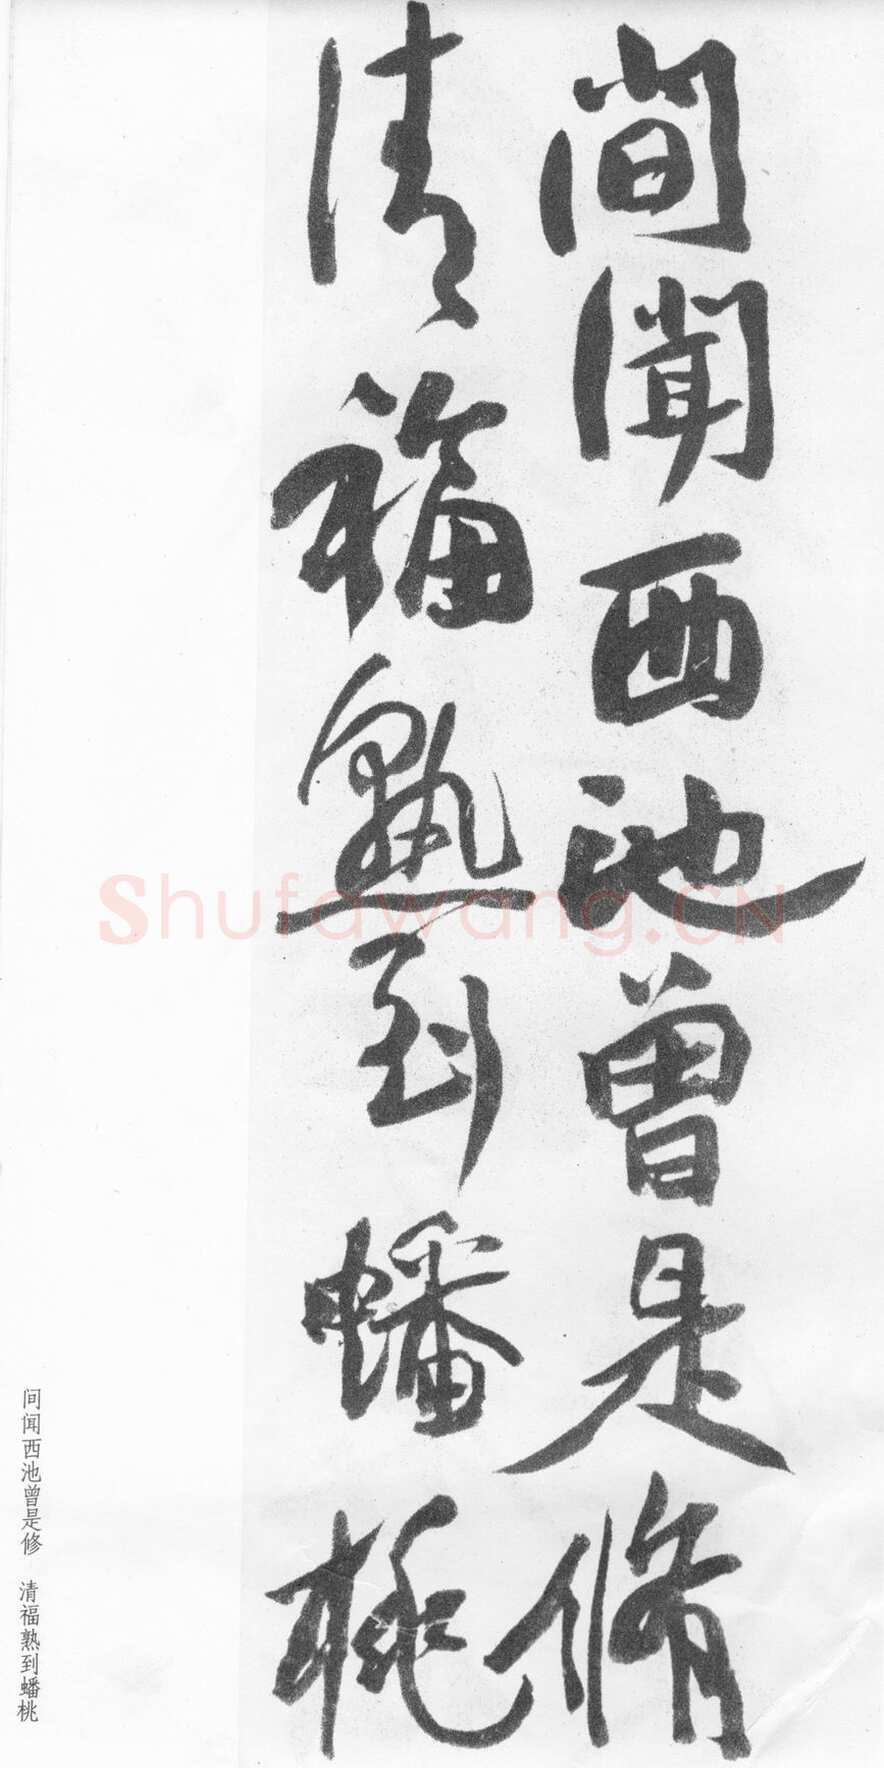 間聞西池曾是修
清福熟到蟠桃
间闻西池曾是修 清福熟到蟠桃
Shufawang.CN